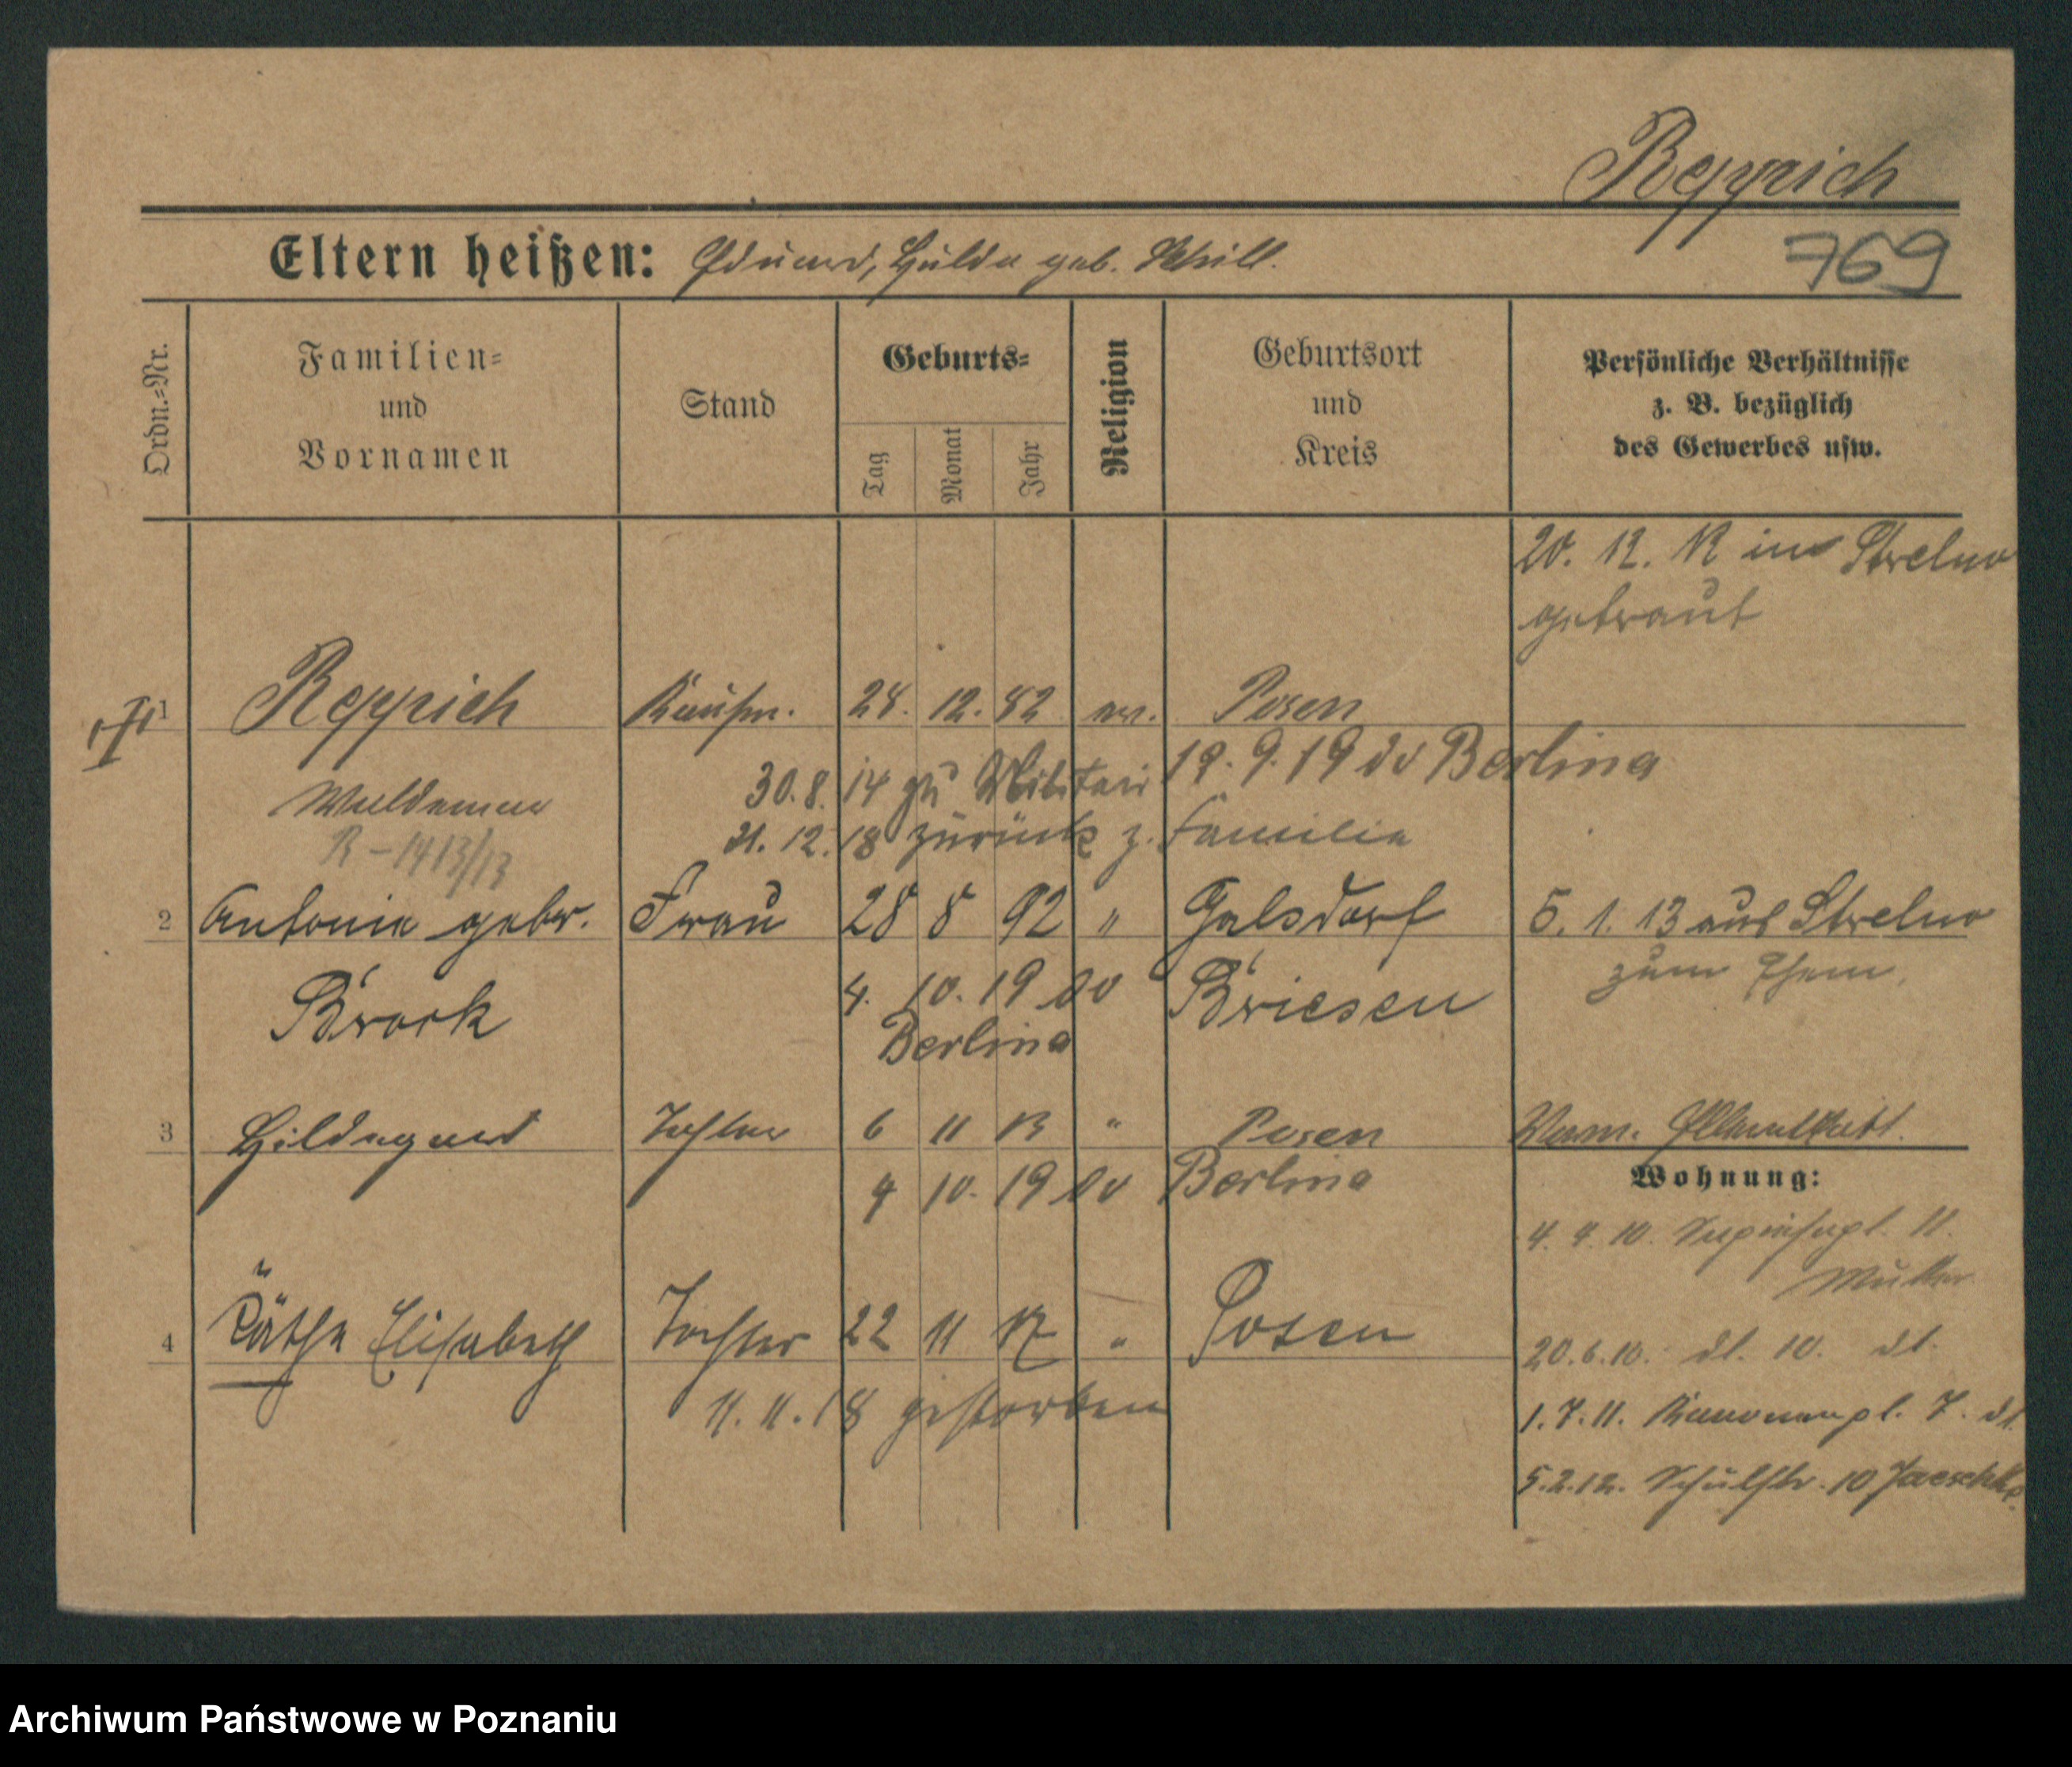 Reppich
Eltern heißen: Eduard, Hulda geb. Schill.
769
Ordn.=Nr.
Familien=
und
Vornamen
Stand
Geburts=
Tag
Monat
Jahr
Religion
Geburtsort
und
Kreis
Persönliche Verhältnisse
z. B. bezüglich
des Gewerbes usw.
20. 12. 12 in Strelno
getraut
1 Reppich Kaufm. 28. 12. 82 ev. Posen
Waldemar
30.8.14 zu Militair
19. 9. 19 do Berlina
R-1413/13
21. 12. 18 zurück z. Familie
2 Antonie gebor. Frau 28 8 92 " Galsdorf
5. 1. 13 aus Strelno
zum Ehem.
Brock
4. 10. 19 do
Berlina
Briesen
3 Hildegard Tochter 6 11 13 " Posen
4 10. 19 do Berlina
Wohnung:
4. 4. 10. 11.
Mutter
4 Käthe Elisabeth Tochter 22 11 17 " Posen
11. 11. 18 gestorben
20.6.10. dt. 10. dt.
1.7.11. Kanonenpl. 7. dt.
5.2.12. Schulstr. 10 Jaeschke
Archiwum Państwowe w Poznaniu